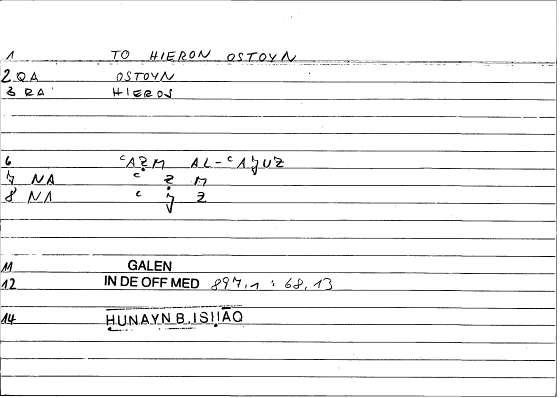 1 TO HIERON OSTOYN
2 QA OSTOYN
3 RA HIEROS
6 ʿAẒM AL-ʿAǦUZ
7 NA ʿ Ẓ M
8 NA ʿ Ǧ Z
11 GALEN
12 IN DE OFF MED 897,1 : 68,13
14 ḤUNAYN B. ISḤĀQ